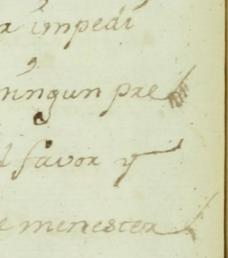 impedi
ningun pre
favor y
menester